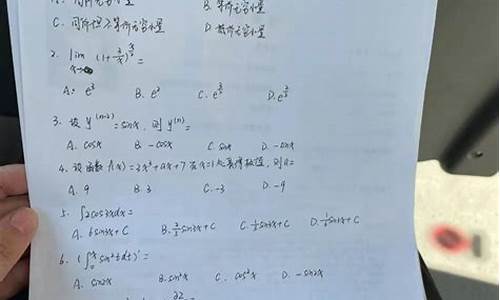 A. 同阶无穷小量 B. 等价无穷小量
C. 同阶但不等价无穷小量 D. 高阶无穷小量
2. lim x→∞ (1+2/x)^
A. e³ B. e² C. e D. e
3. 设 y⁽ⁿ⁻²⁾=sinx, 则 y⁽ⁿ⁾=
A. cosx B. -cosx C. sinx D. -sinx
4. 设函数 f(x)=2x³+ax+7 在x=1处取得极值, 则a=
A. 9 B. 3 C. -3 D. -9
5. ∫2cos3xdx=
A. 6sin3x+C B. 2/3sin3x+C C. 1/3sin3x+C D. 1/6sin3x+C
6. (∫₀ˣsin²tdt)'=
A. sin2x B. sin²x C. cos²x D. -sin2x